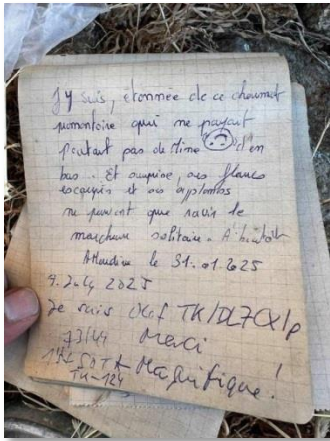 J'y suis, étonnée de ce charmant
promontoire qui ne payait
pourtant pas de mine d'en
bas. Et surprise, ses flancs
escarpés et ses
ne peuvent que ravir le
marcheur solitaire. A bientôt
le 31.01.2025
2025
Je suis TK/DL7CX/p
73/44 Merci
SOTA Magnifique!
TK-124